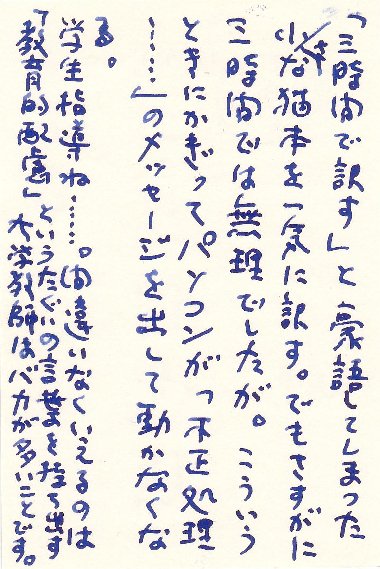 「三時間で訳す」と豪語してしまった
小さな猫本を一気に訳す。でもさすがに
三時間では無理でしたが。こういう
ときにかぎってパソコンが「不正処理
……」のメッセージを出して動かなくな
る。
学生指導ね……。間違いなくいえるのは
「教育的配慮」というたぐいの言葉を持ち出す
大学教師はバカが多いことです。